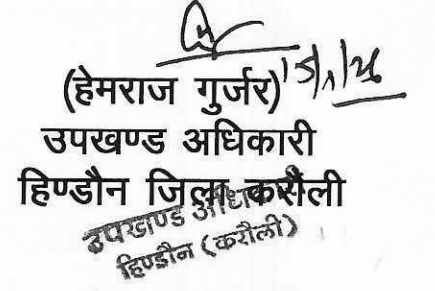 (हेमराज गुर्जर)
उपखण्ड अधिकारी
हिण्डौन जिला करौली
उपखण्ड अधिकारी
हिण्डौन (करौली)